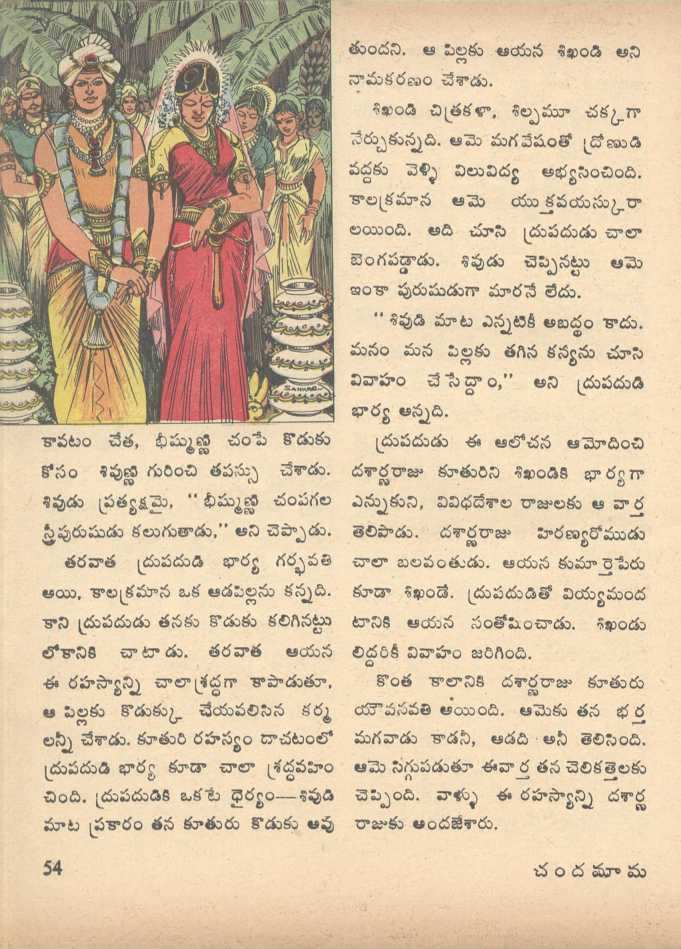 SANKAR
కావటం చేత, భీష్ముణ్ణి చంపే కొడుకు
కోసం శివుణ్ణి గురించి తపస్సు చేశాడు.
శివుడు ప్రత్యక్షమై, "భీష్ముణ్ణి చంపగల
స్త్రీపురుషుడు కలుగుతాడు," అని చెప్పాడు.
తరవాత ద్రుపదుడి భార్య గర్భవతి
అయి, కాలక్రమాన ఒక ఆడపిల్లను కన్నది.
కాని ద్రుపదుడు తనకు కొడుకు కలిగినట్టు
లోకానికి చాటాడు. తరవాత ఆయన
ఈ రహస్యాన్ని చాలా శ్రద్ధగా కాపాడుతూ,
ఆ పిల్లకు కొడుక్కు చేయవలిసిన కర్మ
లన్నీ చేశాడు. కూతురి రహస్యం దాచటంలో
ద్రుపదుడి భార్య కూడా చాలా శ్రద్ధవహిం
చింది. ద్రుపదుడికి ఒకటే ధైర్యం—శివుడి
మాట ప్రకారం తన కూతురు కొడుకు అవు
తుందని. ఆ పిల్లకు ఆయన శిఖండి అని
నామకరణం చేశాడు.
శిఖండి చిత్రకళా, శిల్పమూ చక్కగా
నేర్చుకున్నది. ఆమె మగవేషంతో ద్రోణుడి
వద్దకు వెళ్ళి విలువిద్య అభ్యసించింది.
కాలక్రమాన ఆమె యుక్తవయస్కురా
లయింది. అది చూసి ద్రుపదుడు చాలా
బెంగపడ్డాడు. శివుడు చెప్పినట్టు ఆమె
ఇంకా పురుషుడుగా మారనే లేదు.
"శివుడి మాట ఎన్నటికీ అబద్ధం కాదు.
మనం మన పిల్లకు తగిన కన్యను చూసి
వివాహం చేసేద్దాం," అని ద్రుపదుడి
భార్య అన్నది.
ద్రుపదుడు ఈ ఆలోచన ఆమోదించి
దశార్ణరాజు కూతురిని శిఖండికి భార్యగా
ఎన్నుకుని, వివిధదేశాల రాజులకు ఆ వార్త
తెలిపాడు. దశార్ణరాజు హిరణ్యరోముడు
చాలా బలవంతుడు. ఆయన కుమార్తెపేరు
కూడా శిఖండే. ద్రుపదుడితో వియ్యమంద
టానికి ఆయన సంతోషించాడు. శిఖండు
లిద్దరికీ వివాహం జరిగింది.
కొంత కాలానికి దశార్ణరాజు కూతురు
యౌవనవతి అయింది. ఆమెకు తన భర్త
మగవాడు కాడనీ, ఆడది అనీ తెలిసింది.
ఆమె సిగ్గుపడుతూ ఈవార్త తన చెలికత్తెలకు
చెప్పింది. వాళ్ళు ఈ రహస్యాన్ని దశార్ణ
రాజుకు అందజేశారు.
54
చందమామ